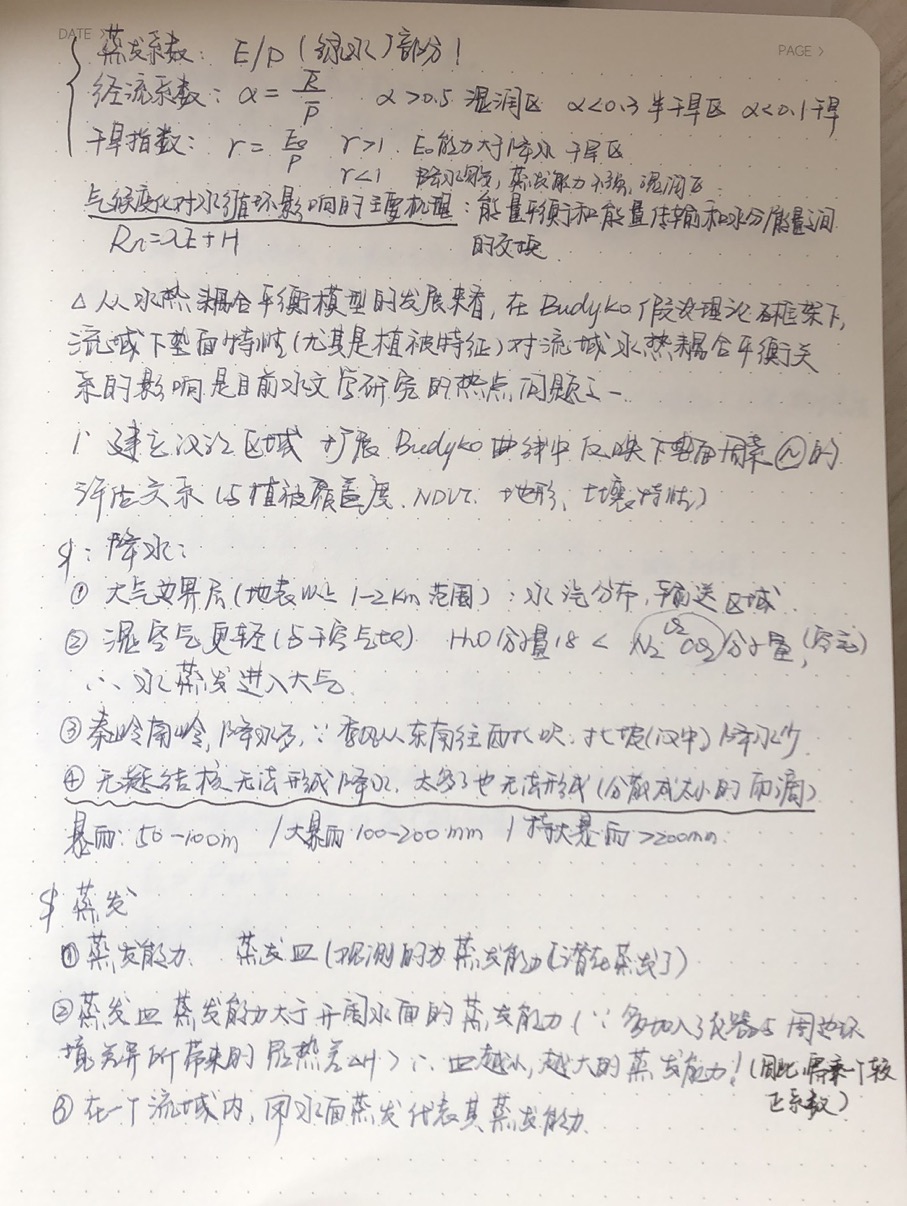 DATE >
PAGE >
蒸发系数: E/P (绿水)部分!
经流系数: α = R̄/P̄ α>0.5 湿润区 α<0.3 半干旱区 α<0.1 干旱
干旱指数: r = E₀/P r>1. E₀能力大于降水 干旱区
r<1 蒸发能力不强, 湿润区.
气候变化对水循环影响的主要机理: 能量平衡和能量传输和水分/能量之间
Rn=λE+H 的交换
△ 从水热耦合平衡模型的发展来看, 在Budyko假设理论框架下,
流域下垫面特性(尤其是植被特征)对流域水热耦合平衡关
系的影响是目前水文学研究的热点问题之一
1. 建立汉江区域 扩展Budyko曲线中反映下垫面因素 n 的
评估关系(与植被覆盖度. NDVI. 地形, 土壤特性)
$: 降水:
① 大气边界层(地表以上 1-2km 范围): 水汽分布, 输送区域.
② 湿空气更轻(与干空气比) H₂O分子量18 < N₂ O₂ CO₂/分子量,
∴ 水蒸发进入大气.
③ 秦岭南岭, 降水多, ∵ 季风从东南往西北吹. 北坡(汉中)降水少
④ 无凝结核无法形成降水. 太多了也无法形成(分散成太小的雨滴)
暴雨: 50-100m / 大暴雨 100-200mm / 特大暴雨 >200mm.
$ 蒸发
① 蒸发能力. 蒸发皿(观测的为蒸发能力(潜在蒸发))
② 蒸发皿蒸发能力大于开阔水面的蒸发能力(∵ 多加入了仪器与周边环
境差异所带来的显热差ΔH) ∴ 皿越小, 越大的蒸发能力! (因此需乘一个较
正系数)
③ 在一个流域内, 用水面蒸发代表其蒸发能力.